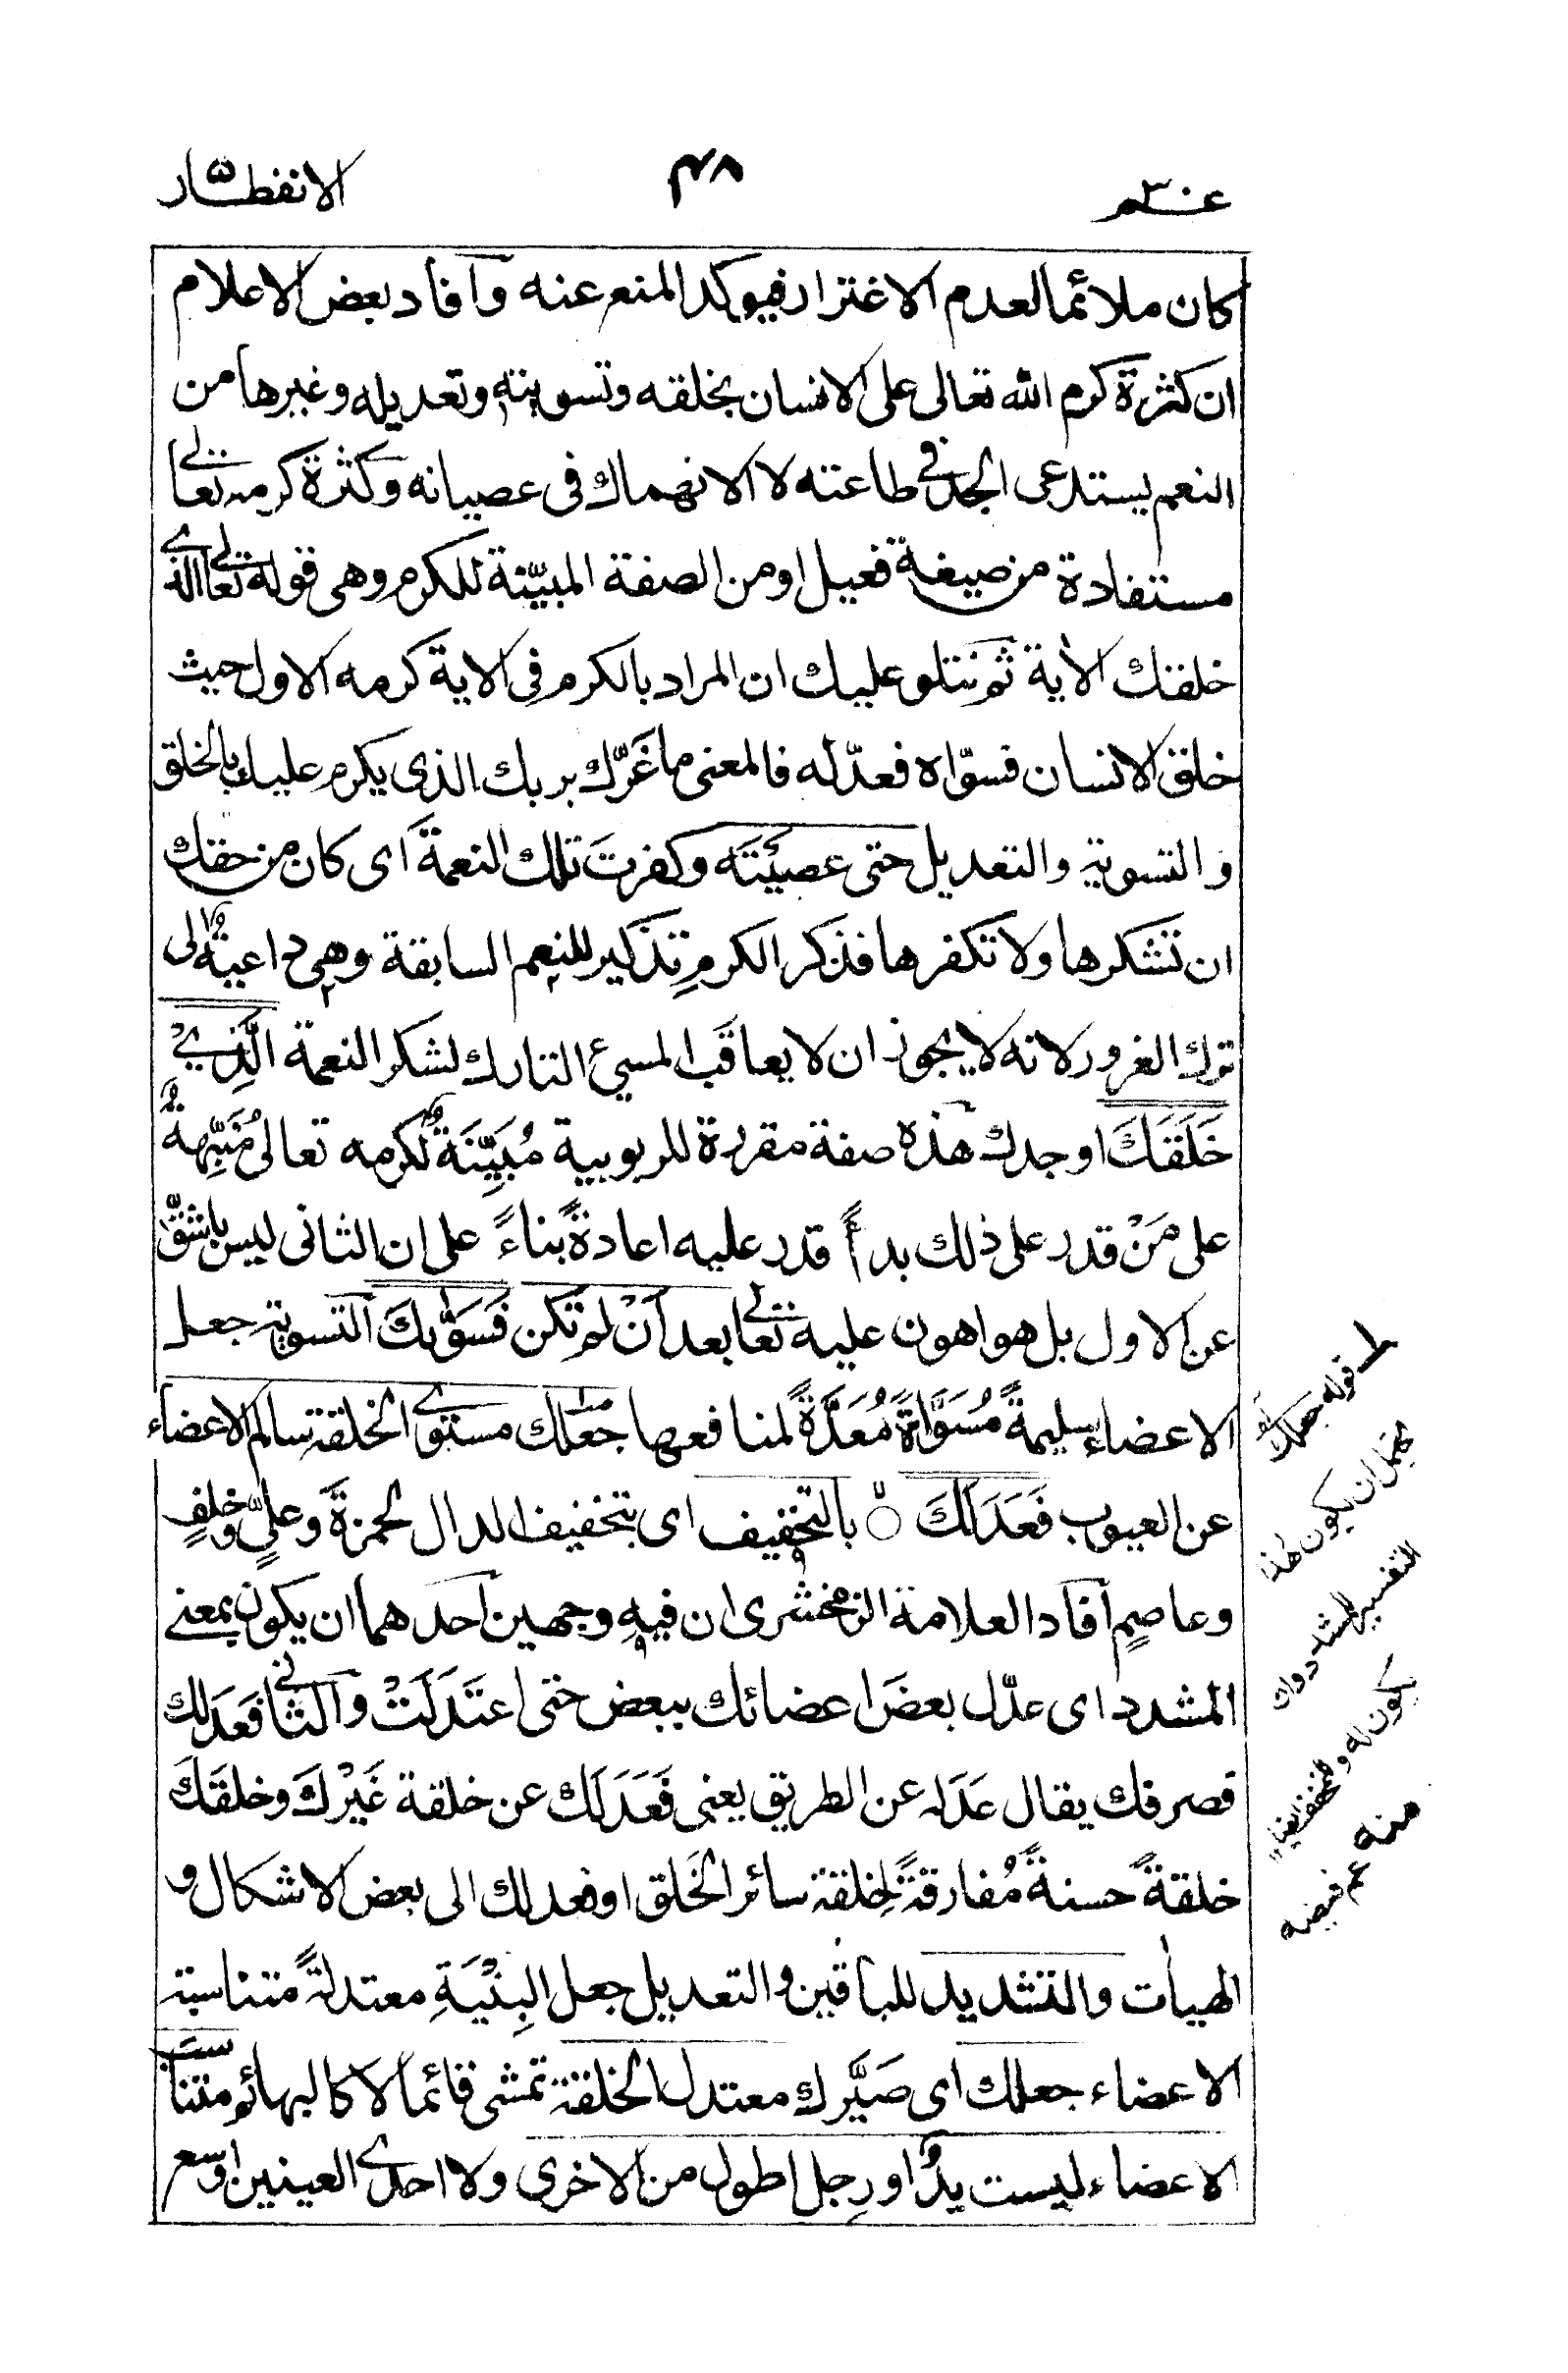 عم ٣٠
٤٨
الانفطار
كان ملائما لعدم الاغترار فيوكد المنع عنه وافاد بعض الاعلام
ان كثرة كرم الله تعالى على الانسان بخلقه وتسويته وتعديله وغيرها من
النعم يستدعى الجد فى طاعته لا الانهماك فى عصيانه وكثرة كرمه تعالى
مستفادة من صيغة فعيل او من الصفة المبيّنة للكرم وهى قوله تعالى الذى
خلقك الاٰية ثم نتلو عليك ان المراد بالكرم فى الاية كرمه الاول حيث
خلق الانسان فسوّاه فعدّله فالمعنى ما غَرَّك بربك الذى يكرم عليك بالخلق
والتسوية والتعديل حتى عصيْتَه وكفرتَ تلك النعمة اى كان من حقك
ان تشكرها ولا تكفرها فذكر الكرمِ تذكير للنعم السابقة وهى داعيةٌ الى
ترك الغرور لانه لا يجوز ان لا يعاقَب المسيئ التارك لشكر النعمة الَّذِىْ
خَلَقَكَ اوجدك هذه صفة مقررة للربوبية مُبَيِّنَةٌ لكرمه تعالى مُنَبِّهةٌ
على مَنْ قدر على ذلك بدأً قدر عليه اعادةً بناءً على ان الثانى ليس باشقَّ
عن الاول بل هو اهون عليه تعالى بعد اَنْ لم تكن فَسَوّٰىكَ التسوية جعل
الاعضاء سليمةً مُسَوَّاةً مُعَدَّةً لمنافعها جعلك مستوى الخلقة سالم الاعضاء
عن العيوب فَعَدَلَكَ ۝ بالتخفيف اى بتخفيف الدال لحمزةَ وعلىٍّ وخلفٍ
وعاصمٍ افاد العلامة الزمخشرى ان فيه وجهين احدهما ان يكون بمعنى
المشدد اى عدّل بعضَ اعضائك ببعض حتى اعتَدَلَتْ والثانى فَعَدَلك
فصرفك يقال عَدَله عن الطريق يعنى فَعَدَلَك عن خلقة غَيْرِك وخلقَكَ
خلقةً حسنةً مُفارقةً لِخلقة سائر الخَلق او فعدلك الى بعض الاشكال و
الهيأت والتشديد للباقين والتعديل جعل البِنْيَةِ معتدلةً متناسبة
الاعضاء جعلك اى صَيَّرك معتدل الخلقة تمشى قائما لا كالبهائم متناسب
الاعضاء ليست يدٌ او رجل اطول من الاخرى ولا احدى العينين اوسع
قوله جعلك
يحتمل ان يكون هذا
التفسير للمشدد وان
يكون له وللمخفف ايضا
منه عم فيضه